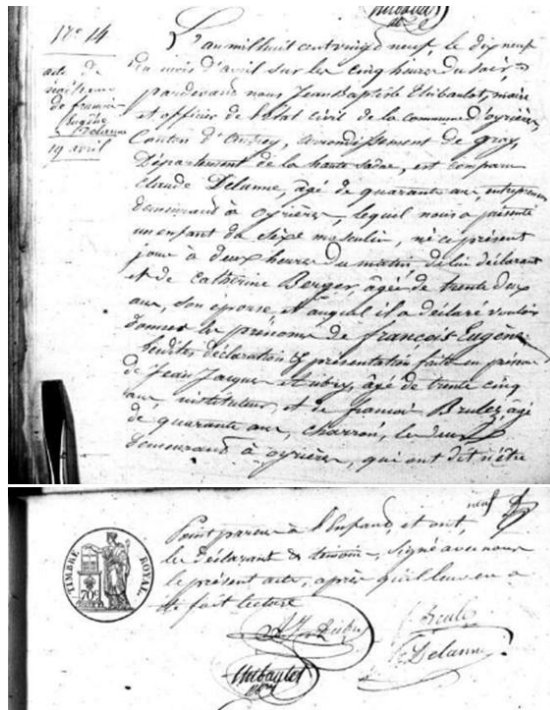 N° 14
acte de
naissance
de françois
Eugène
Delanne
19 avril
L'an mil huit cent vingt neuf, le dix neuf
du mois d'avril sur les cinq heures du soir,
pardevant nous Jean Baptiste Thibaulot, maire
et officier de l'état civil de la commune d'oyrières
Canton d'autrey, arrondissement de gray,
Département de la haute Saône, est comparu
Claude Delanne, âgé de quarante ans, entrepreneur
demeurant à oyrières, lequel nous a présenté
un enfant du sexe masculin, né ce présent
jour à deux heures du matin, de lui déclarant
et de Catherine Berger, âgée de trente deux
ans, son épouse, et auquel il a déclaré vouloir
donner les prénoms de françois Eugène
lesdites déclaration et présentation faites en présence
de Jean Jacques Aubry, âgé de trente cinq
ans, instituteur, et de françois Brulez, âgé
de quarante ans, charron, les deux
demeurand à oyrières, qui ont dit n'être
neuf
Point parens à l'Enfand, et ont
les Déclarant & témoins, signé avec nous
le présent acte, après qu'il leur en a
été fait lecture
TIMBRE ROYAL
70c
Delanne
Thibaulot